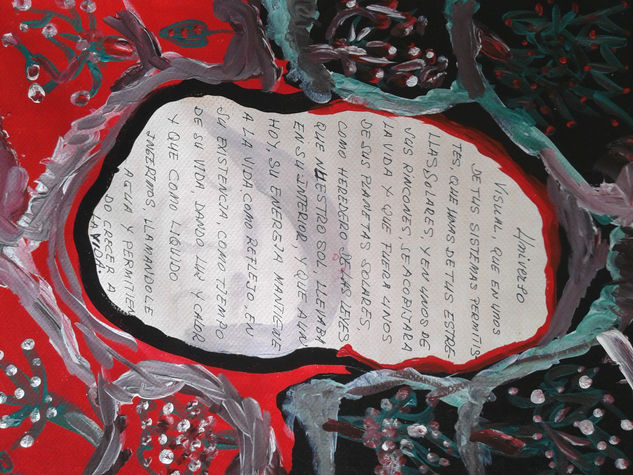 Universo
VISUAL QUE EN UNOS
DE TUS SISTEMAS PERMITIS
TES, QUE UNAS DE TUS ESTRE
LLAS SOLARES, Y EN UNOS DE
SUS RINCONES, SE ACOBIJARA
LA VIDA Y QUE FUERA UNOS
DE SUS PLANETAS SOLARES,
COMO HEREDERO DE LAS LEYES
QUE NUESTRO SOL, LLEVABA
EN SU INTERIOR Y QUE AUN
HOY, SU ENERGIA MANTIENE
A LA VIDA COMO REFLEJO, EN
SU EXISTENCIA COMO TIEMPO
DE SU VIDA DANDO LUZ Y CALOR
Y QUE COMO LIQUIDO
INGERIMOS, LLAMANDOLE
AGUA Y PERMITIEN
DO CRECER A
LA VIDA.